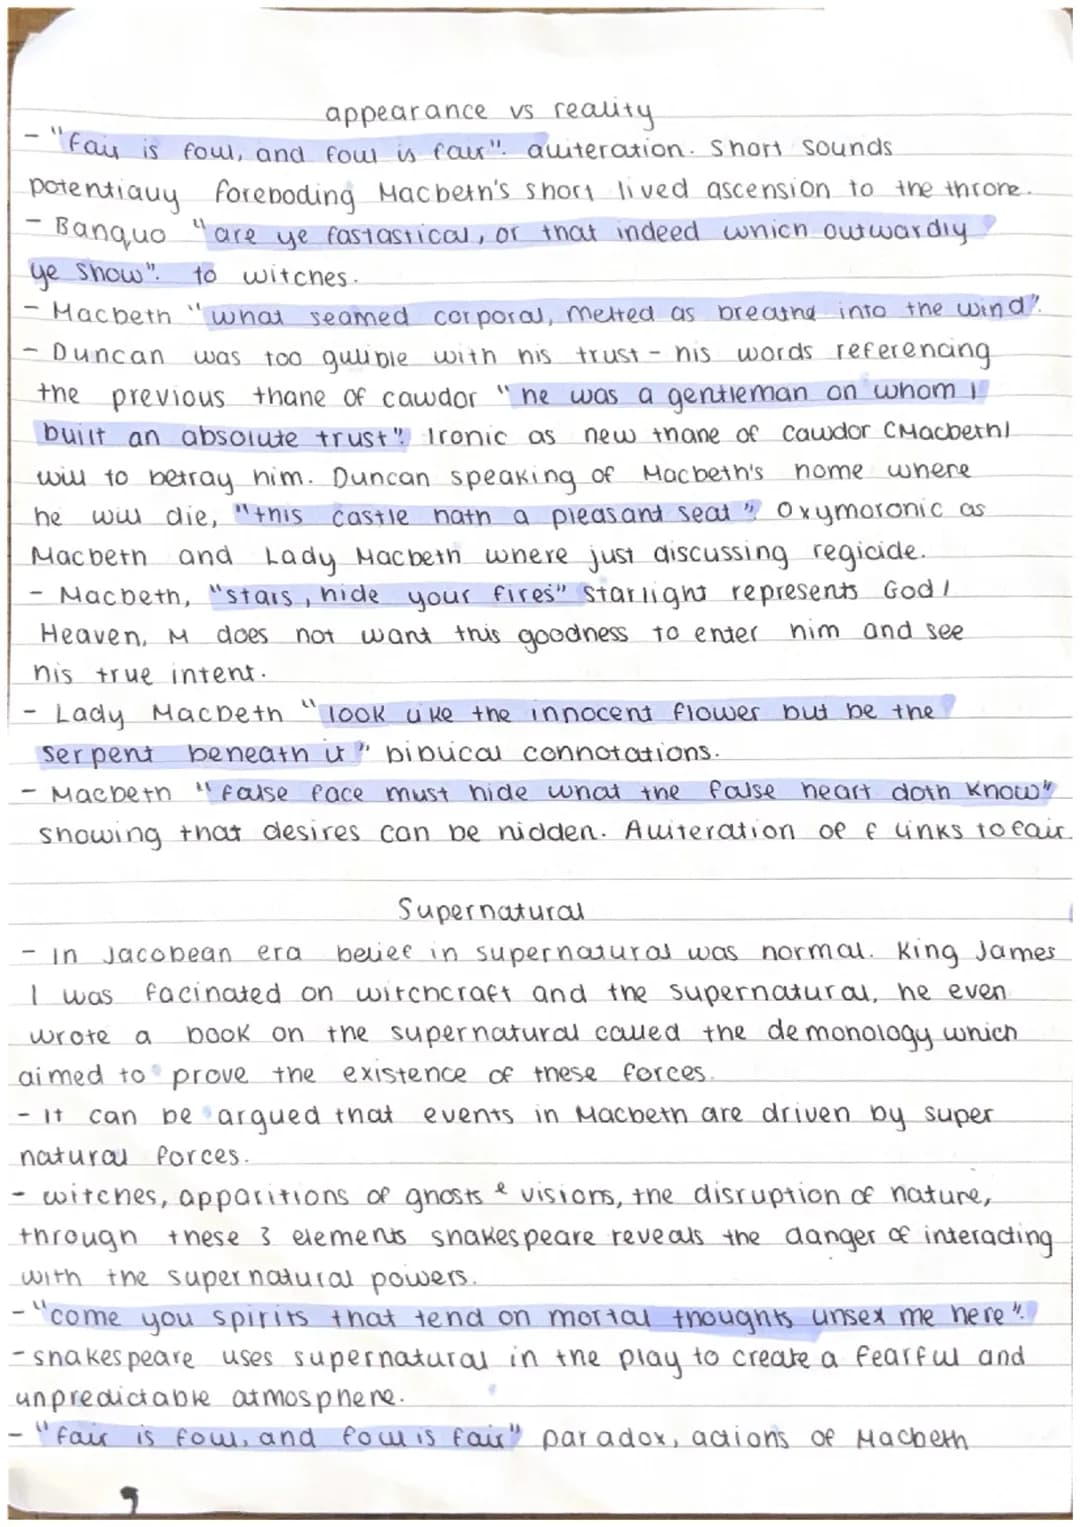 appearance vs reality
- "fair is foul, and foul is fair". alliteration. Short sounds
potentially foreboding Macbeth's short lived ascension to the throne.
- Banquo "are ye fastastical, or that indeed which outwardly
ye show". to witches.
- Macbeth "what seamed corporal, melted as breathe into the wind".
- Duncan was too gullible with his trust - his words referencing
the previous thane of cawdor "he was a gentleman on whom I
built an absolute trust". Ironic as new thane of cawdor (Macbeth)
will to betray him. Duncan speaking of Macbeth's home where
he will die, "this castle hath a pleasant seat". Oxymoronic as
Macbeth and Lady Macbeth where just discussing regicide.
- Macbeth, "stars, hide your fires" starlight represents God/
Heaven, M does not want this goodness to enter him and see
his true intent.
- Lady Macbeth "look like the innocent flower but be the
serpent beneath it" biblical connotations.
- Macbeth "false face must hide what the false heart doth know"
showing that desires can be hidden. Alliteration of f links to fair
Supernatural
- In Jacobean era belief in supernatural was normal. King James
I was facinated on witchcraft and the supernatural, he even
wrote a book on the supernatural called the demonology which
aimed to prove the existence of these forces.
- It can be argued that events in Macbeth are driven by super
natural forces.
- witches, apparitions of ghosts & visions, the disruption of nature,
through these 3 elements shakespeare reveals the danger of interacting
with the supernatural powers.
- "come you spirits that tend on mortal thoughts unsex me here".
- shakespeare uses supernatural in the play to create a fearful and
unpredictable atmosphere.
- "fair is foul, and foul is fair" paradox, actions of Macbeth